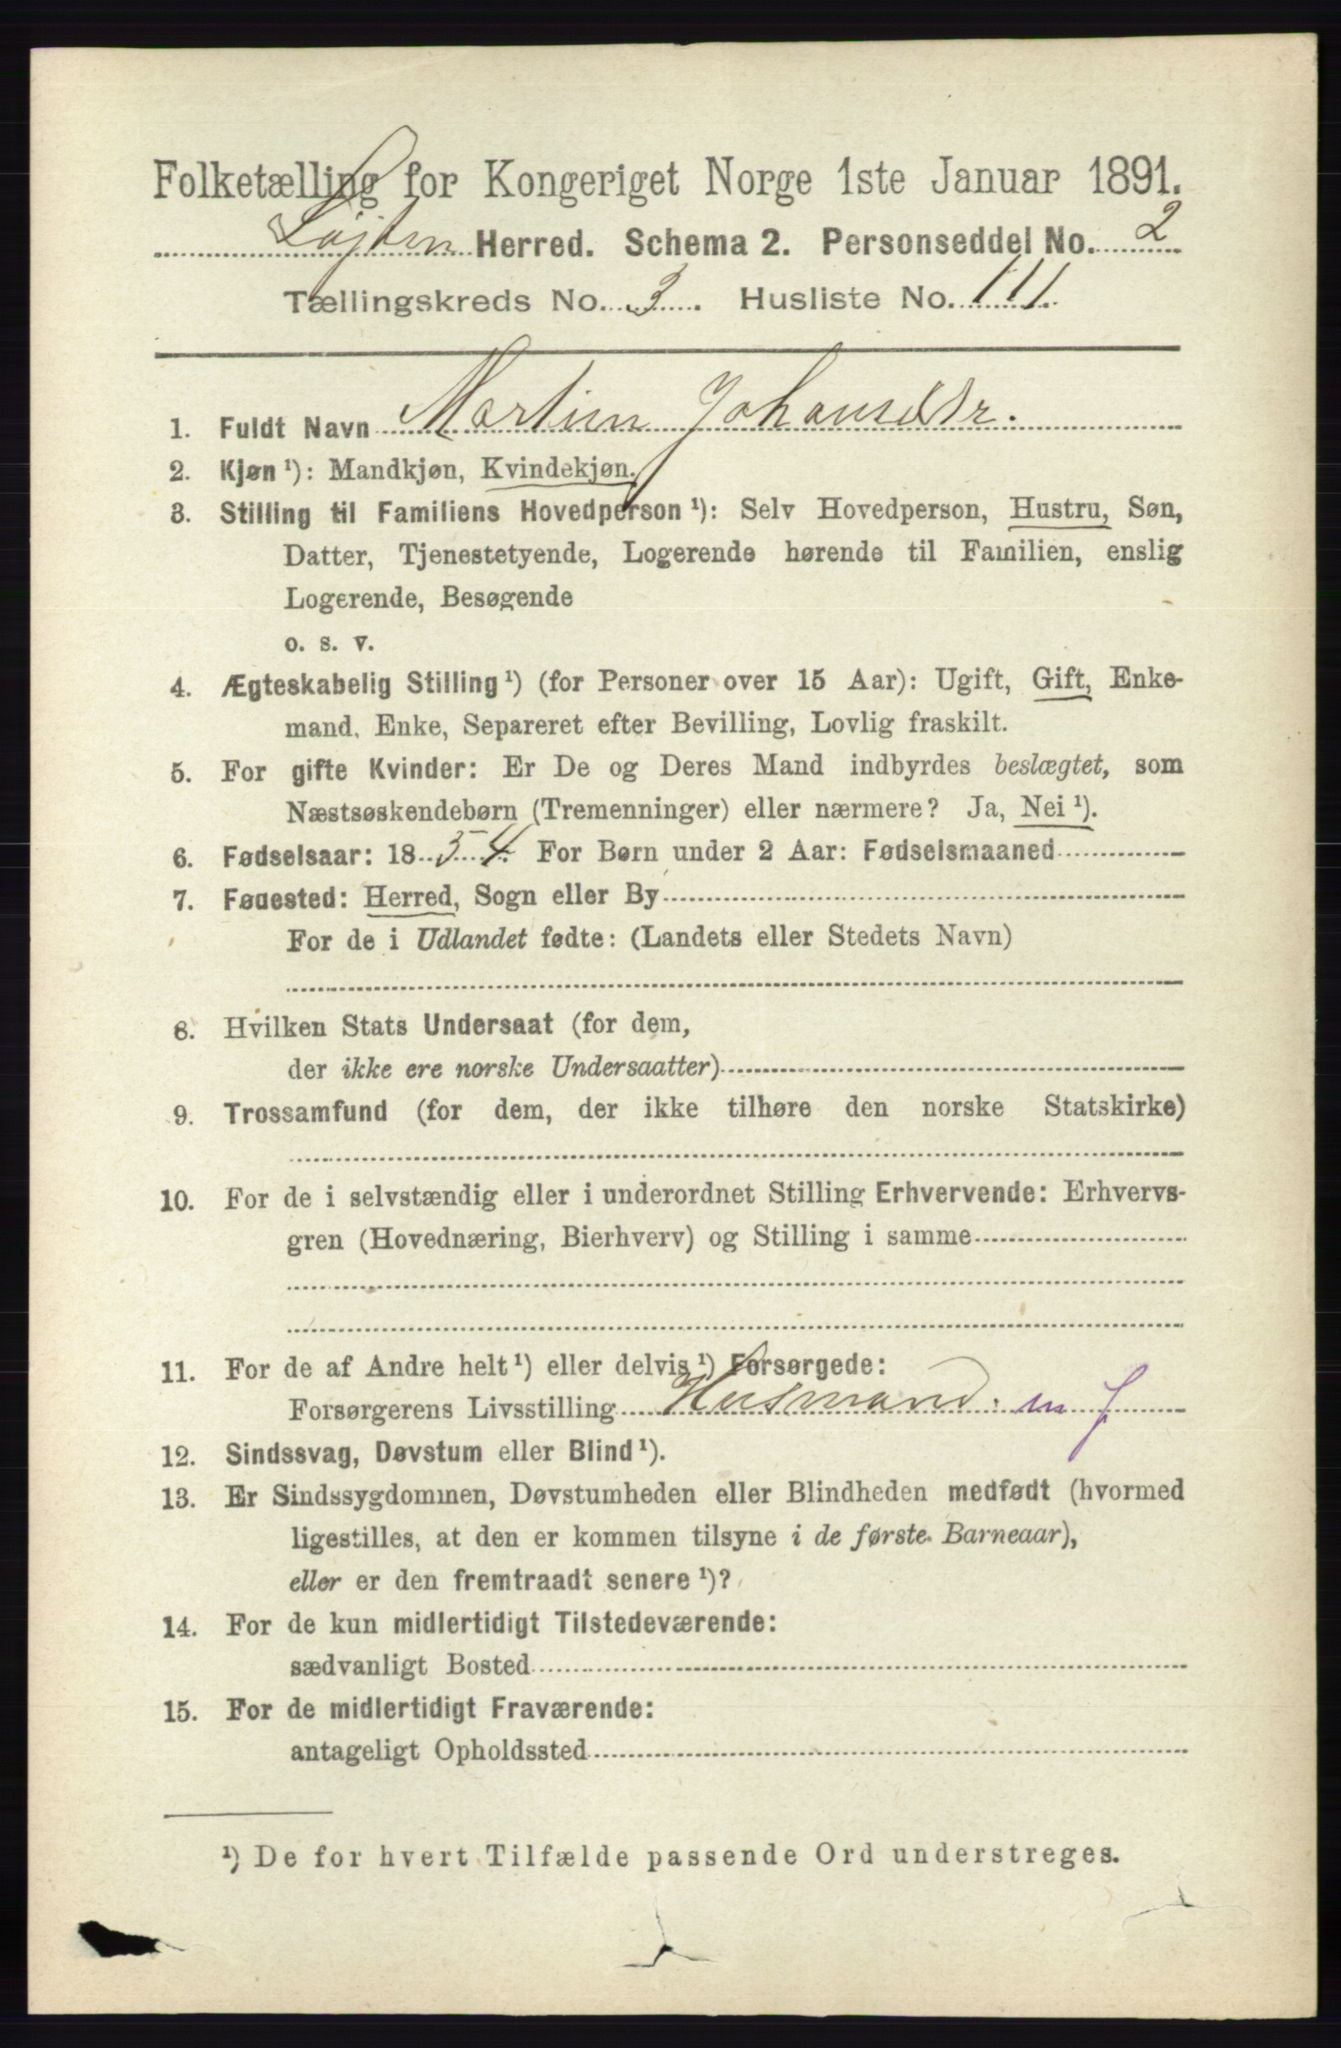 Folketælling for Kongeriget Norge 1ste Januar 1891.
Løjten Herred. Schema 2. Personseddel No. 2
Tællingskreds No. 3. Husliste No. 111.
1. Fuldt Navn Martin Johansdtr.
2. Kjøn ¹): Mandkjøn, Kvindekjøn.
3. Stilling til Familiens Hovedperson ¹): Selv Hovedperson, Hustru, Søn,
Datter, Tjenestetyende, Logerende hørende til Familien, enslig
Logerende, Besøgende
o. s. v.
4. Ægteskabelig Stilling ¹) (for Personer over 15 Aar): Ugift, Gift, Enke-
mand, Enke, Separeret efter Bevilling, Lovlig fraskilt.
5. For gifte Kvinder: Er De og Deres Mand indbyrdes beslægtet, som
Næstsøskendebørn (Tremenninger) eller nærmere? Ja, Nei ¹).
6. Fødselsaar: 1854. For Børn under 2 Aar: Fødselsmaaned
7. Fødested: Herred, Sogn eller By
For de i Udlandet fødte: (Landets eller Stedets Navn)
8. Hvilken Stats Undersaat (for dem,
der ikke ere norske Undersaatter)
9. Trossamfund (for dem, der ikke tilhøre den norske Statskirke)
10. For de i selvstændig eller i underordnet Stilling Erhvervende: Erhvervs-
gren (Hovednæring, Bierhverv) og Stilling i samme
11. For de af Andre helt ¹) eller delvis ¹) Forsørgede:
Forsørgerens Livsstilling Husmand. m J
12. Sindssvag, Døvstum eller Blind ¹).
13. Er Sindssygdommen, Døvstumheden eller Blindheden medfødt (hvormed
ligestilles, at den er kommen tilsyne i de første Barneaar),
eller er den fremtraadt senere ¹)?
14. For de kun midlertidigt Tilstedeværende:
sædvanligt Bosted
15. For de midlertidigt Fraværende:
antageligt Opholdssted
¹) De for hvert Tilfælde passende Ord understreges.